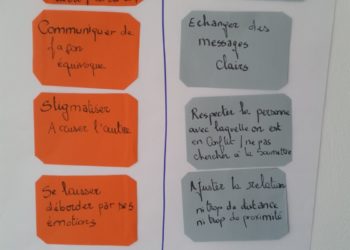 Communiquer de
façon
équivoque
Echanger des
messages
Clairs
Stigmatiser
Accuser l'autre
Respecter la personne
avec laquelle on est
en Conflit / ne pas
chercher à la soumettre
Se laisser
déborder par ses
émotions
Ajuster la relation
ni trop de distance
ni trop de proximité